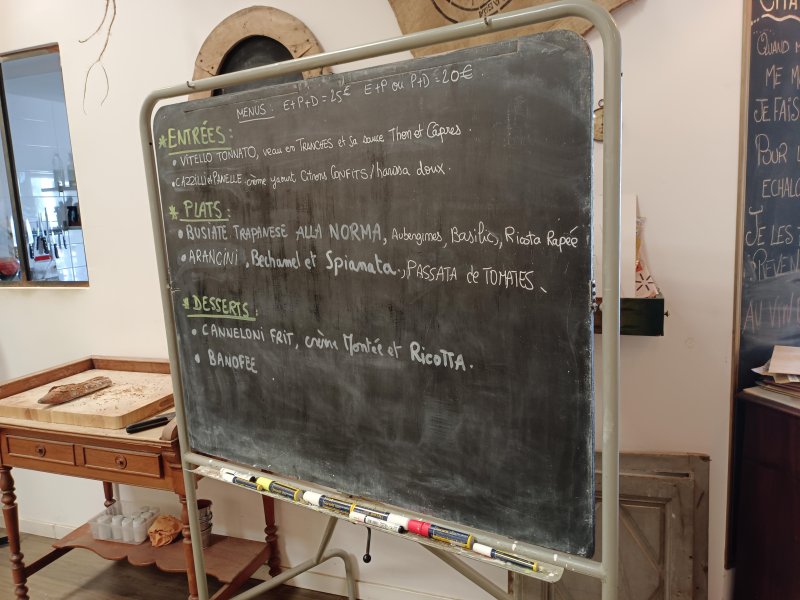 MENUS : E+P+D = 25€ E+P ou P+D = 20€.
* ENTRÉES :
• VITELLO TONNATO, veau en TRANCHES et sa sauce Thon et Câpres.
• CAZZILLI et PANELLE crème yaourt Citrons CONFITS / harissa doux.
* PLATS :
• BUSIATE TRAPANESE ALLA NORMA, Aubergines, Basilic, Ricota Rapée
• ARANCINI, Bechamel et Spianata, PASSATA de TOMATES.
* DESSERTS :
• CANNELONI FRIT, crème Montée et RICOTTA.
• BANOFEE
QUAND
ME
JE FAIS
POUR
ECHALO
JE LES
AU VIN